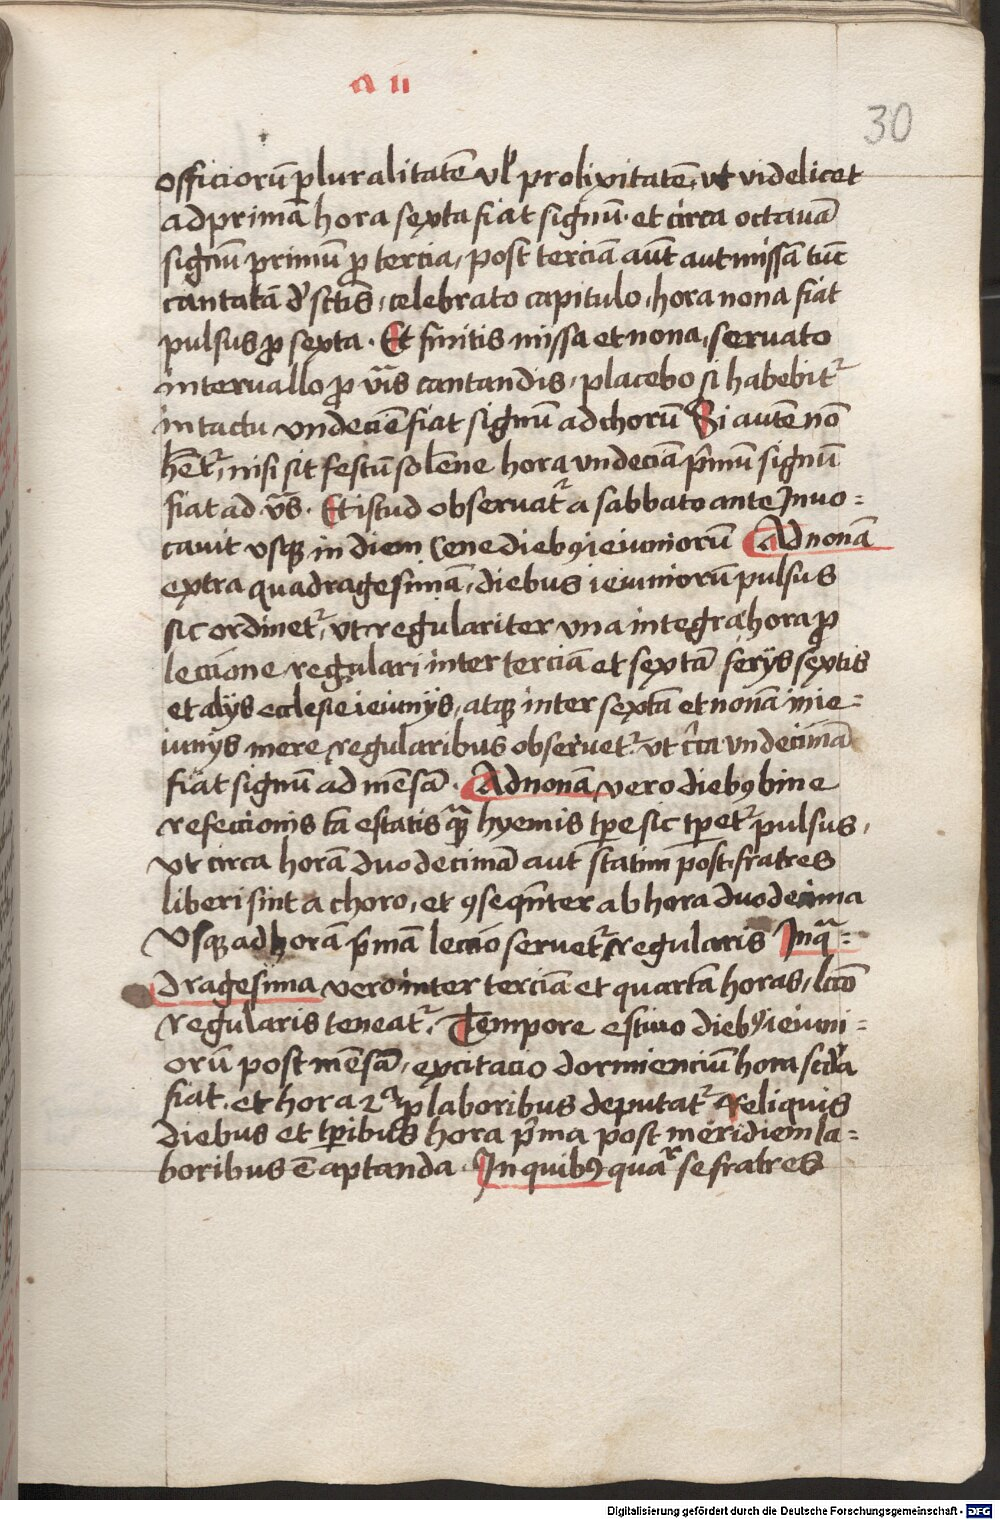 a ii
30
officiorū ꝑluralitatē vl' prolixitatē, vt videlicet
ad primā hora sexta fiat signū. et circa octauā
signū primū ꝓ tercia, post terciā aūt aut missā tūc
cantatā d' sctīs, celebrato capitulo, hora nona fiat
pulsus ꝓ sexta. Et finitis missa et nona, seruato
interuallo ꝓ vīīs cantandis, placebo si habebit᷑
in tactu vndecīe fiat signū ad chorū Si autē nō
hēt᷑, nisi sit festū solēne hora vndeciā p̄mū signū
fiat ad v̄s. Et istud obseruat᷑ a sabbato ante Inuo=
cauit vsqꝫ in diem Cene diebꝰ ieiuniorū Ad nonā
extra quadragesimā, diebus ieiuniorū pulsus
sic ordinet᷑, vt regulariter vna integra hora ꝓ
leccione regulari inter terciā et sextā ferijs sextis
et alijs ecclesie ieiunijs, atqꝫ inter sextā et nonā in ie=
iunijs mere regularibus obseruet᷑ vt c̄rca vndecimā
fiat signū ad mēsā. Ad nonā vero diebꝰ bine
refeccionis tā estatis qꝫ hyemis tp̄e sic tp̄et᷑ pulsus,
vt circa horā duodecimā aut statim post fratres
liberi sint a choro, et ꝯseqn̄ter ab hora duodecima
vsqꝫ ad horā p̄mā leccio seruet᷑ regularis In qͣ=
dragesima vero inter terciā et quartā horas, lcc̄o
regularis teneat᷑. Tempore estiuo diebꝰ ieiuni=
orū post mēsā, excitacio dormienciū hora scd'a
fiat. et hora 2ͣ ꝑ laboribus deputat᷑ Reliquis
diebus et tp̄ibus hora p̄ma post meridiem la=
boribus ē aptanda. In quibꝰ quāʳ se fratres
Digitalisierung gefördert durch die Deutsche Forschungsgemeinschaft - DFG